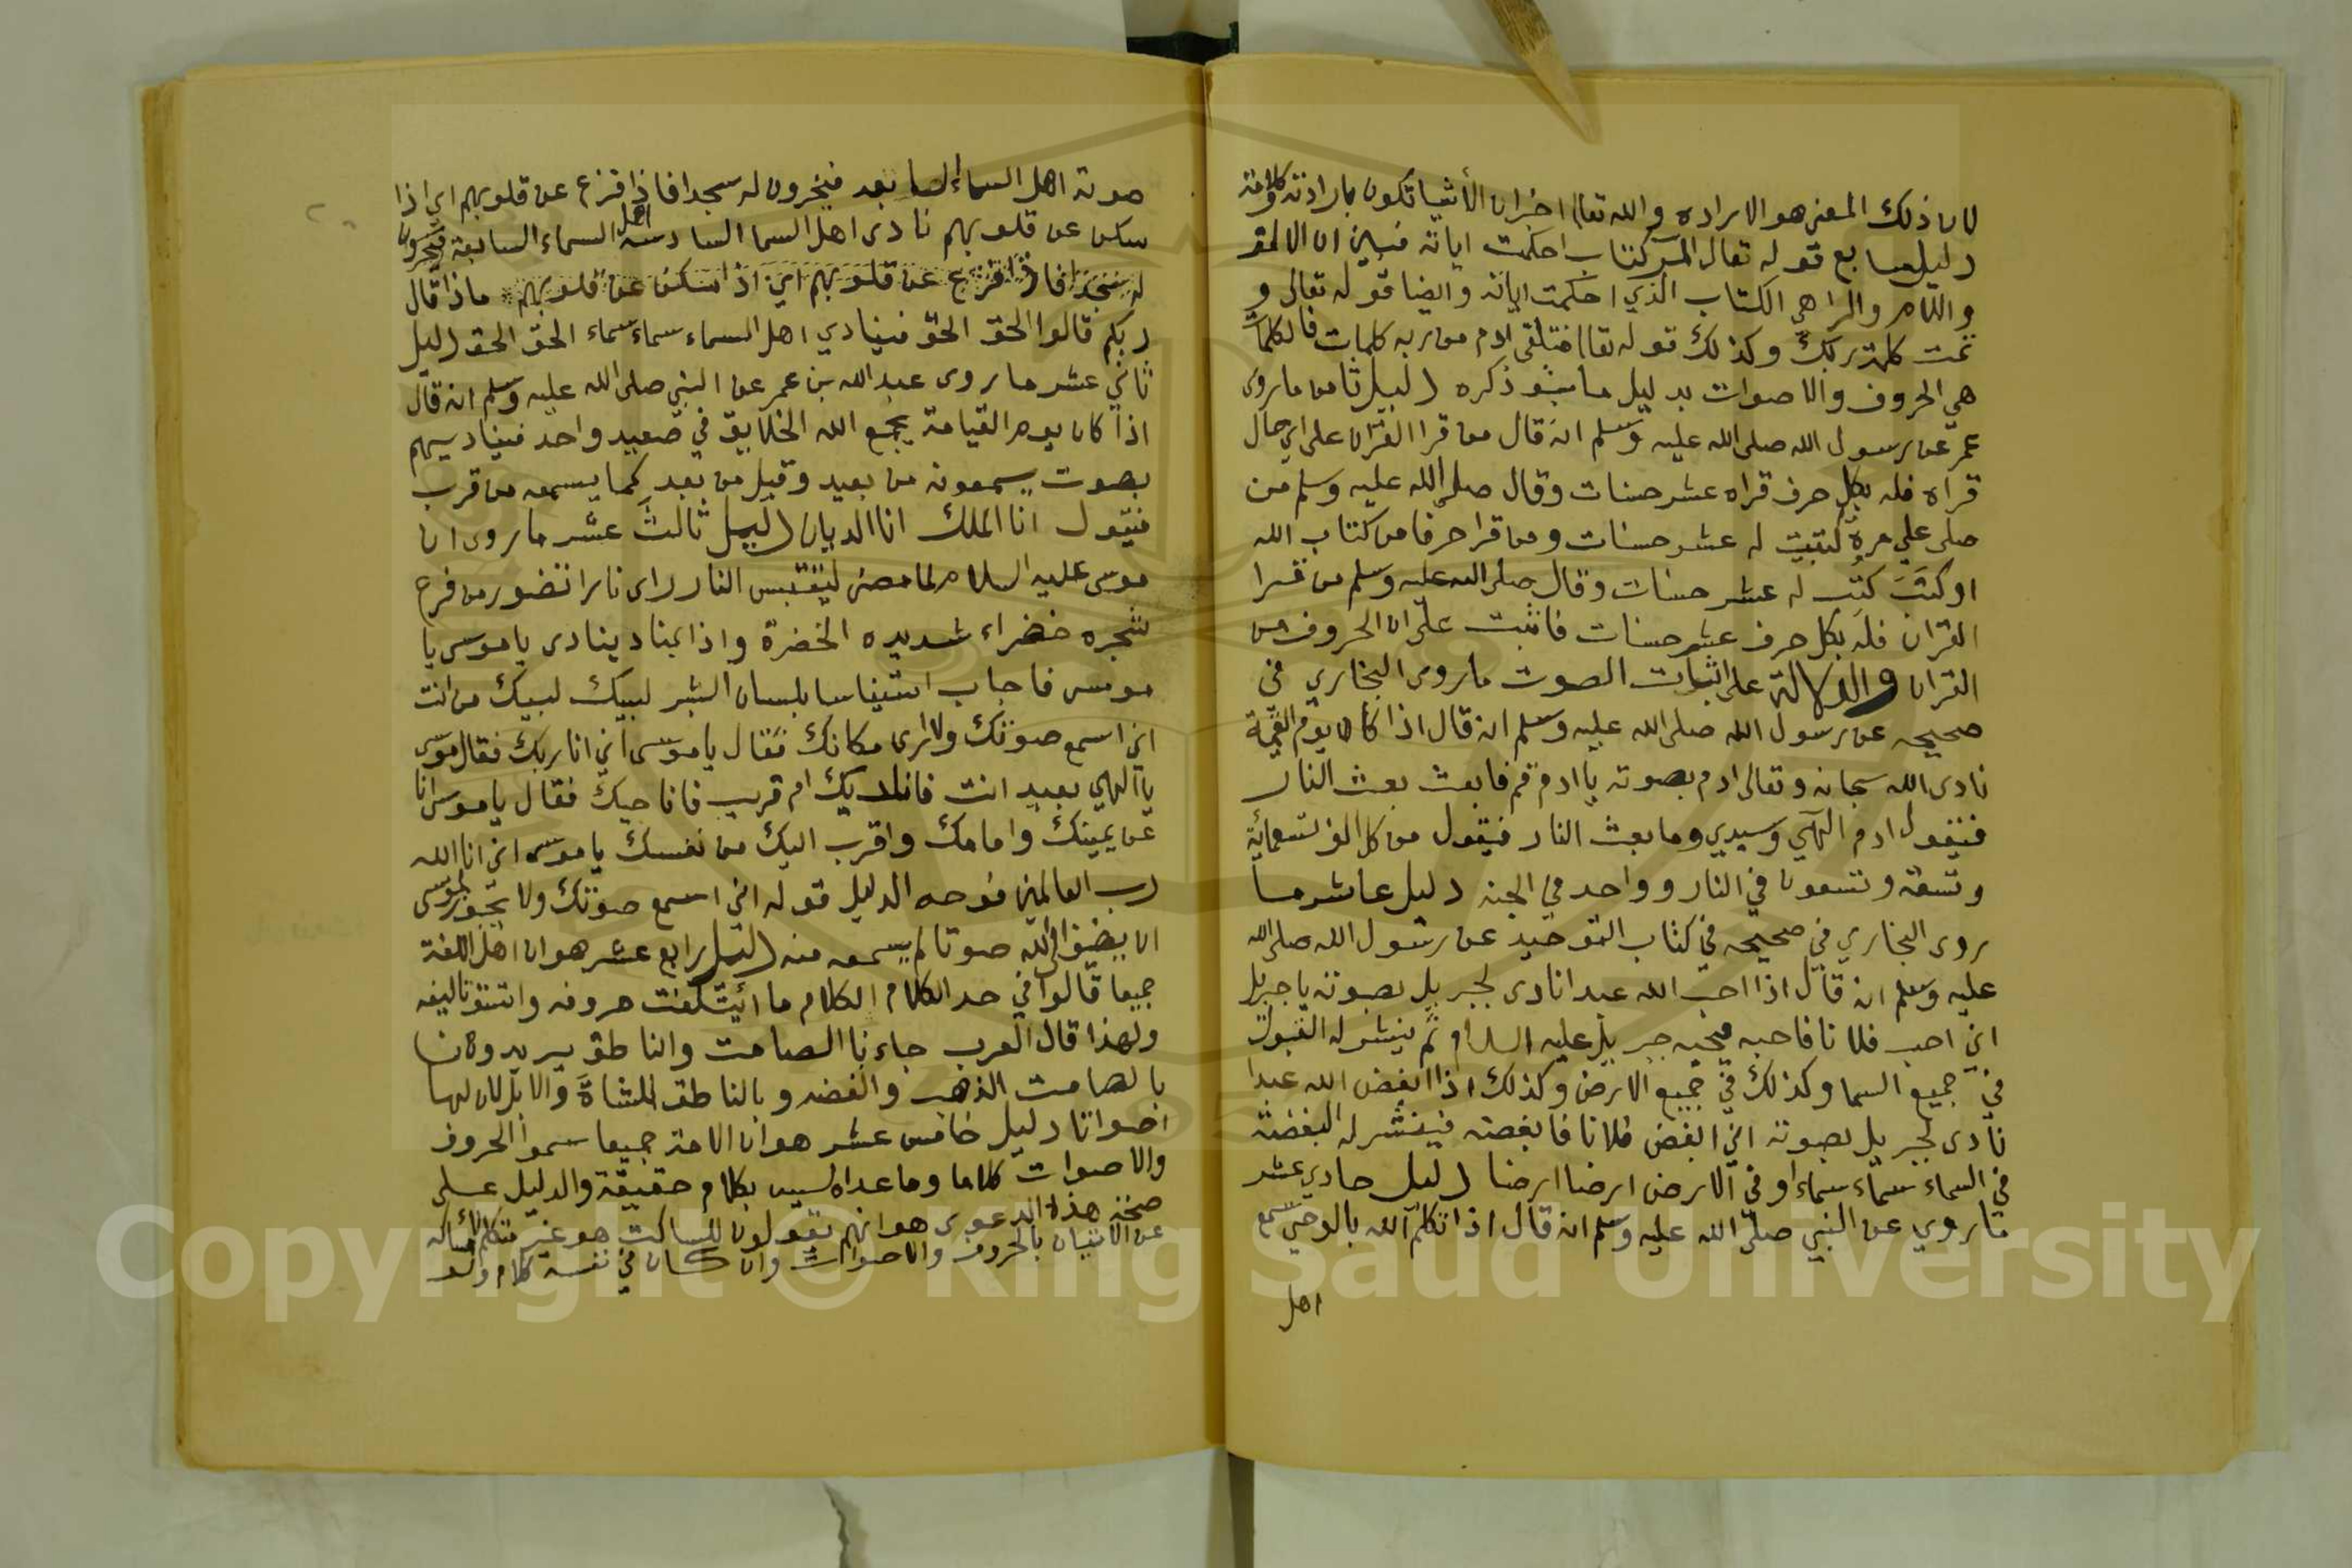 لان ذلك المعنى هو الاراده والله تعالى اخبر ان الأشيا تكون بارادته كلامه
دليل سابع قوله تعالى الر كتاب احكمت اياته فبين ان الالف
واللام والرا هي الكتاب الذي احكمت اياته وايضا قوله تعالى و
تمت كلمة ربك وكذلك قوله تعالى فتلقى ادم من ربه كلمات فالكلمات
هي الحروف والاصوات بدليل ما سبق ذكره دليل ثامن ما روى
عمر عن رسول الله صلى الله عليه وسلم انه قال من قرا القران على اي حال
قراه فله بكل حرف قراه عشر حسنات وقال صلى الله عليه وسلم من
صلى علي مرة كتبت له عشر حسنات ومن قرا حرفا من كتاب الله
او كتب كتب له عشر حسنات وقال صلى الله عليه وسلم من قرا
القران فله بكل حرف عشر حسنات فاثبت على ان الحروف من
القران والدلالة على اثبات الصوت ما روى البخاري في
صحيحه عن رسول الله صلى الله عليه وسلم انه قال اذا كان يوم القيمة
نادى الله سبحانه وتعالى ادم بصوته يا ادم قم فابعث بعث النار
فيقول ادم الهي وسيدي وما بعث النار فيقول من كل الف تسعمائة
وتسعة وتسعون في النار وواحد في الجنه دليل عاشر ما
روى البخاري في صحيحه في كتاب التوحيد عن رسول الله صلى الله
عليه وسلم انه قال اذا احب الله عبدا نادى لجبريل بصوته يا جبريل
اني احب فلانا فاحبه فيحبه جبريل عليه السلام ثم ينشر له القبول
في جميع السما وكذلك في جميع الارض وكذلك اذا ابغض الله عبدا
نادى لجبريل بصوته اني ابغض فلانا فابغضه فينشر له البغضة
في السماء سماء سماء او في الارض ارضا ارضا دليل حادي عشر
ما روي عن النبي صلى الله عليه وسلم انه قال اذا تكلم الله بالوحي سمع
اهل
صوته اهل السماء السابعه فيخرون له سجدا فاذا فزع عن قلوبهم اي اذا
سكن عن قلوبهم نادى اهل السما السادسة اهل السماء السابعة فيخرون
له سجدا فاذا فزع عن قلوبهم اي اذا سكن عن قلوبهم ماذا قال
ربكم قالوا الحق الحق فينادي اهل السماء سماء سماء الحق الحق دليل
ثاني عشر ما روى عبد الله بن عمر عن النبي صلى الله عليه وسلم انه قال
اذا كان يوم القيامة يجمع الله الخلايق في صعيد واحد فيناديهم
بصوت يسمعونه من بعيد وقيل من بعد كما يسمعه من قرب
فيقول انا الملك انا الديان دليل ثالث عشر ما روى ان
موسى عليه السلام لما مضى ليقتبس النار راى نارا تضور من فرع
شجره خضراء شديده الخضرة واذا بمناد ينادى يا موسى يا
موسى فاجاب استيناسا بلسان البشر لبيك لبيك من انت
اني اسمع صوتك ولا ارى مكانك فقال يا موسى اني انا ربك فقال موسى
يا الهي بعيد انت فاناديك ام قريب فاناجيك فقال يا موسى انا
عن يمينك وامامك واقرب اليك من نفسك يا موسى اني انا الله
رب العالمين فوجه الدليل قوله اني اسمع صوتك ولا يجوز لموسى
ان يضيف الى الله صوتا لم يسمعه منه دليل رابع عشر هو ان اهل اللغة
جميعا قالوا في حد الكلام الكلام ما ائيتلفت حروفه واتسق تاليفه
ولهذا قال العرب جاءنا الصامت والناطق يريدون
بالصامت الذهب والفضه وبالناطق الشاة والابل لان لها
اصواتا دليل خامس عشر هو ان الامة جميعا سموا الحروف
والاصوات كلاما وما عداه ليس بكلام حقيقة والدليل على
صحة هذه الدعوى هو انهم يقولون للساكت هو غير متكلم لامساكه
عن الاتيان بالحروف والاصوات وان كان في نفسه كلام
Copyright © King Saud University